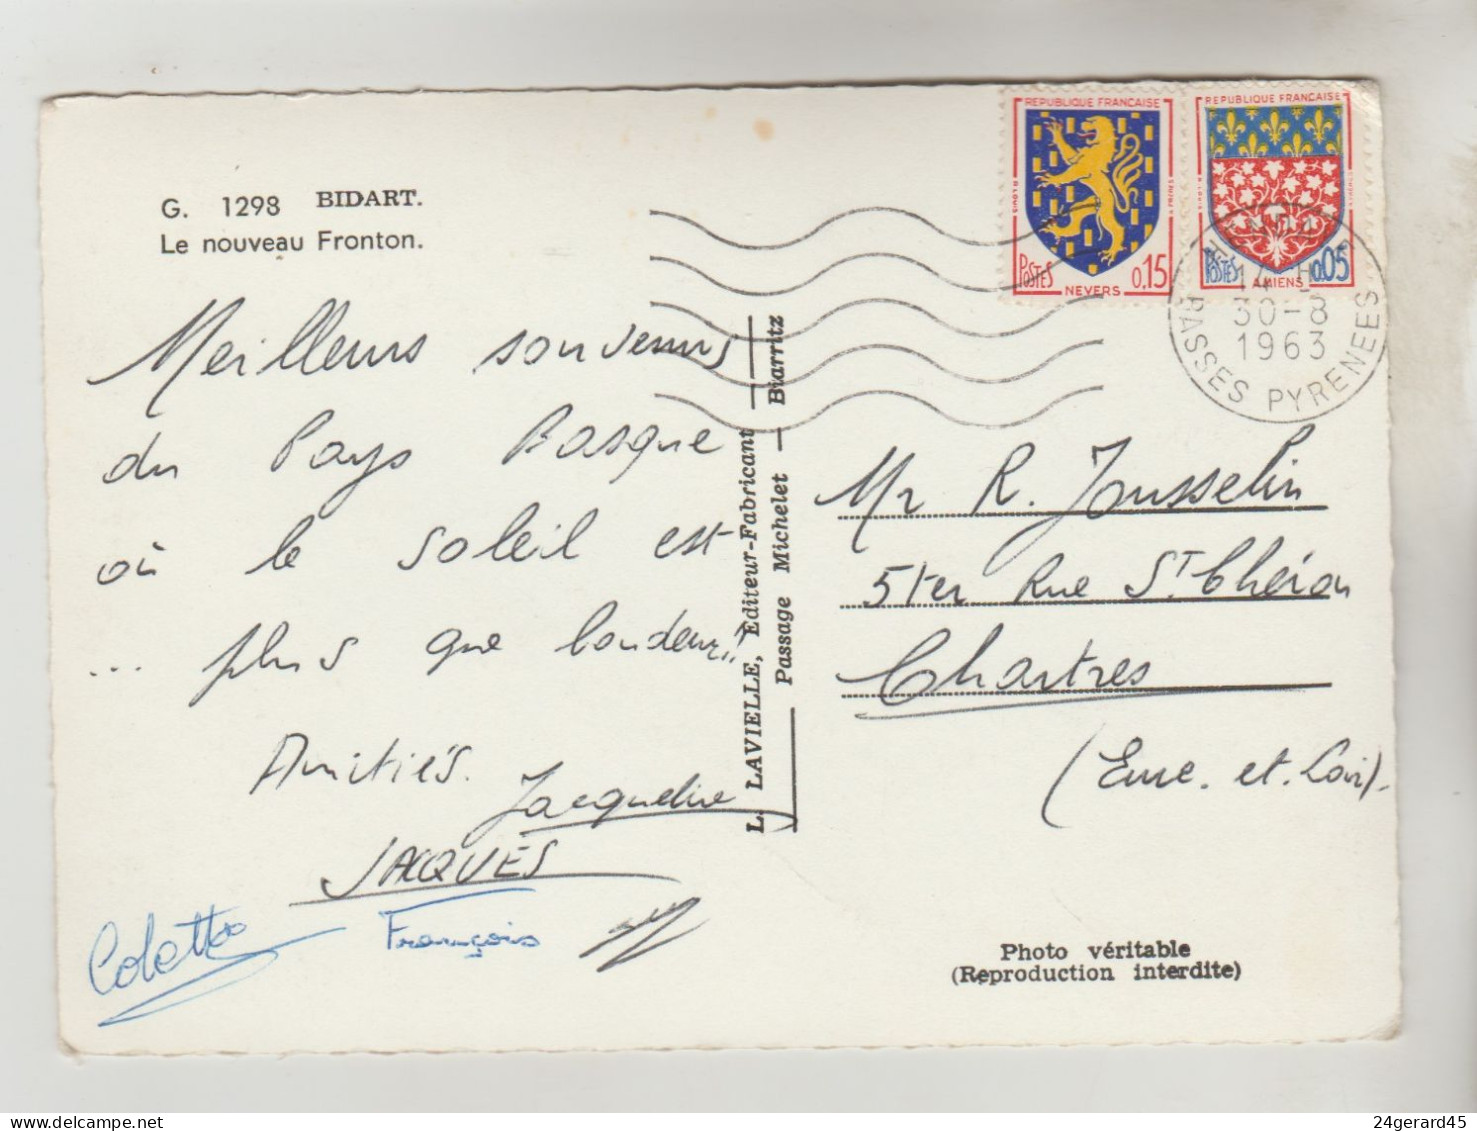 G. 1298 BIDART.
Le nouveau Fronton.
Meilleurs souvenirs
du Pays Basque
où le soleil est
... plus que boudeur!!
Amitiés.
Jacqueline
JACQUES
Colette
François
L. LAVIELLE, Editeur-Fabricant — Biarritz
Passage Michelet
REPUBLIQUE FRANÇAISE
POSTES
0,15
NEVERS
REPUBLIQUE FRANÇAISE
POSTES
0,05
AMIENS
30-8
1963
BASSES PYRENEES
Mr R. Jousselin
5ter Rue St. Chéron
Chartres
(Eure. et. Loir).
Photo véritable
(Reproduction interdite)
24gerard45